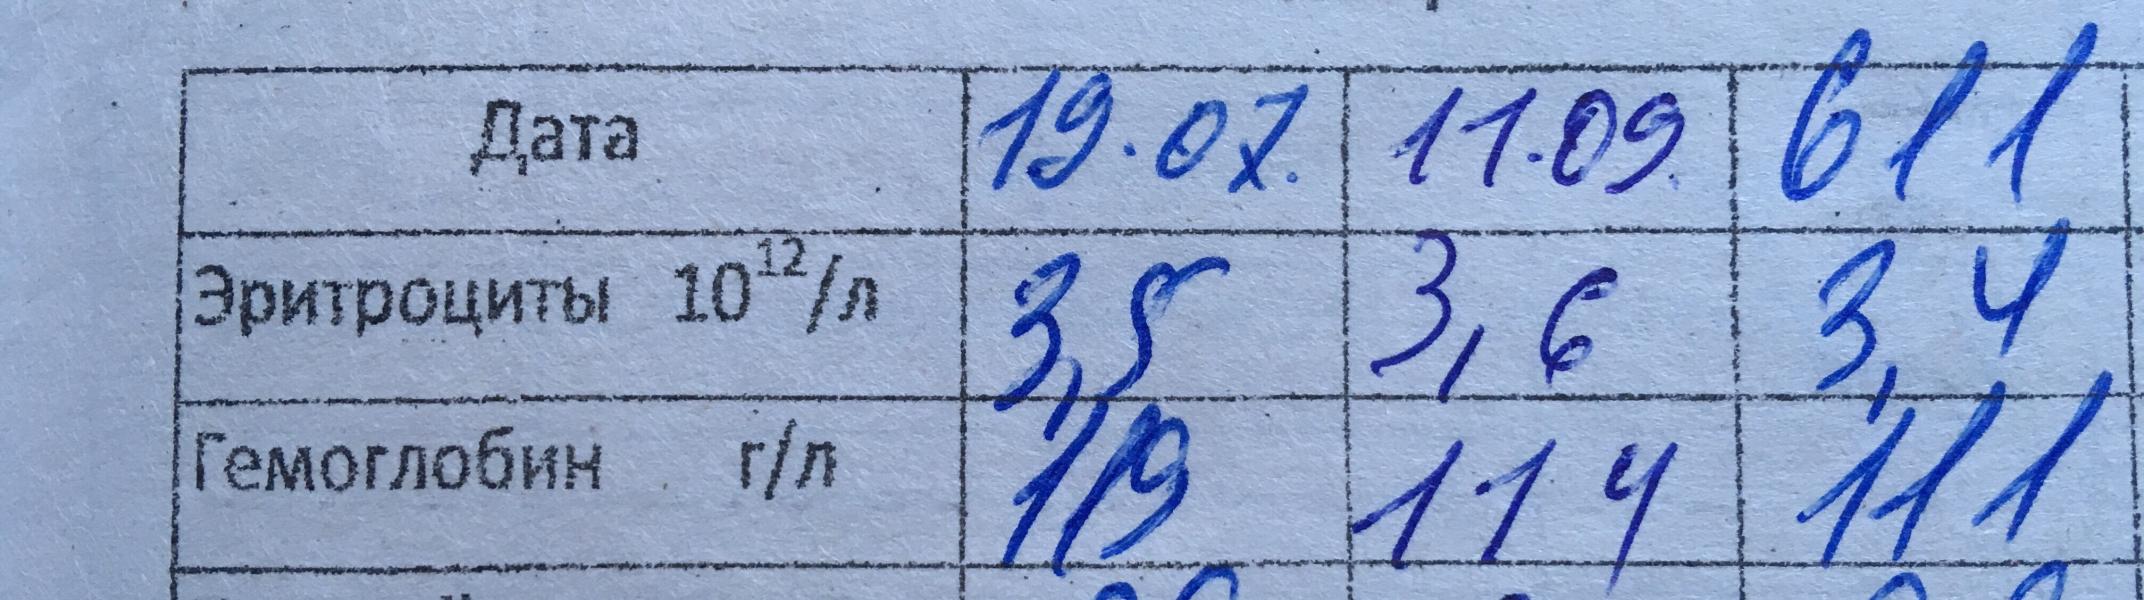 Дата 19.07. 11.09. 6 11
Эритроциты 10¹²/л 3,5 3,6 3,4
Гемоглобин г/л 119 114 111